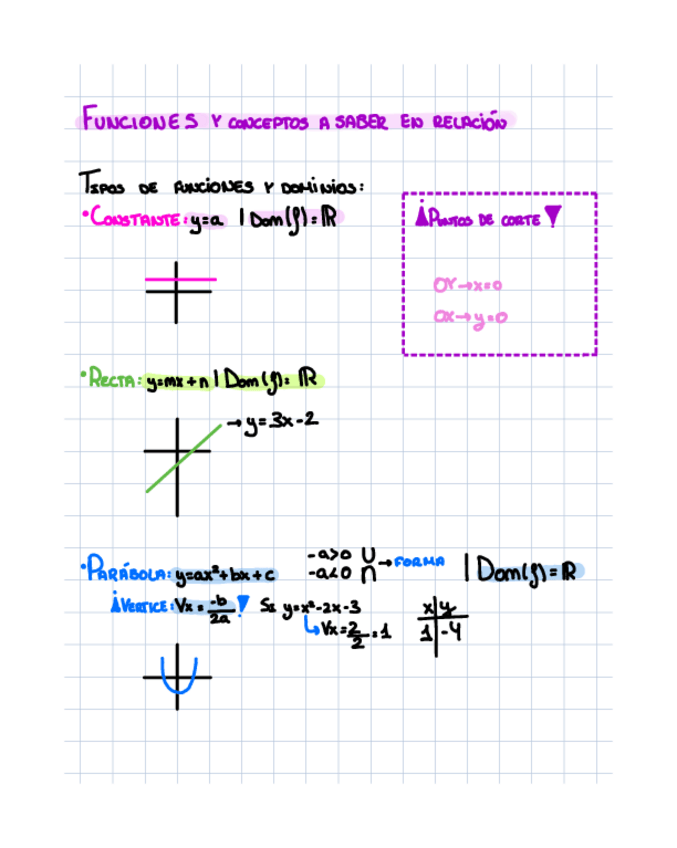 FUNCIONES Y CONCEPTOS A SABER EN RELACIÓN
TIPOS DE FUNCIONES Y DOMINIOS:
• CONSTANTE: y=a | Dom(f)=ℝ
¡PUNTOS DE CORTE!
OY→x=0
OX→y=0
• RECTA: y=mx+n | Dom(f)=ℝ
→y=3x-2
• PARÁBOLA: y=ax²+bx+c
-a>0 ∪
-a<0 ∩
→FORMA
| Dom(f)=ℝ
¡VERTICE: Vx = -b/2a! Si y=x²-2x-3
↳Vx=2/2=1
x|y
1|-4